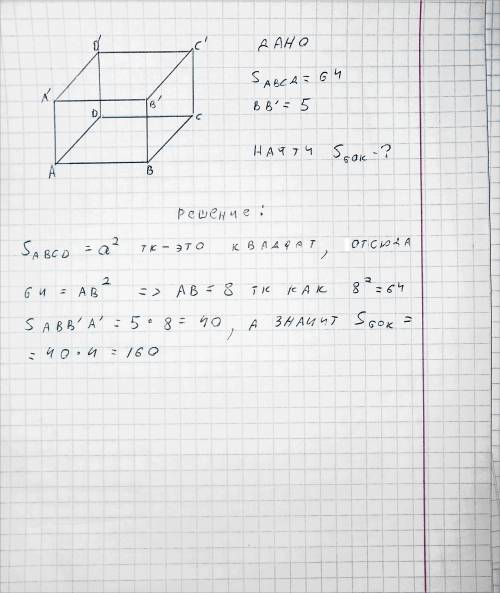 ДАНО
D' C'
S ABCD = 64
A' B'
BB' = 5
D C
НАЙТИ Sбок - ?
A B
Решение:
S ABCD = a² тк - это квадрат, отсюда
64 = AB² => AB = 8 тк как 8² = 64
S ABB'A' = 5 · 8 = 40, а значит Sбок =
= 40 · 4 = 160